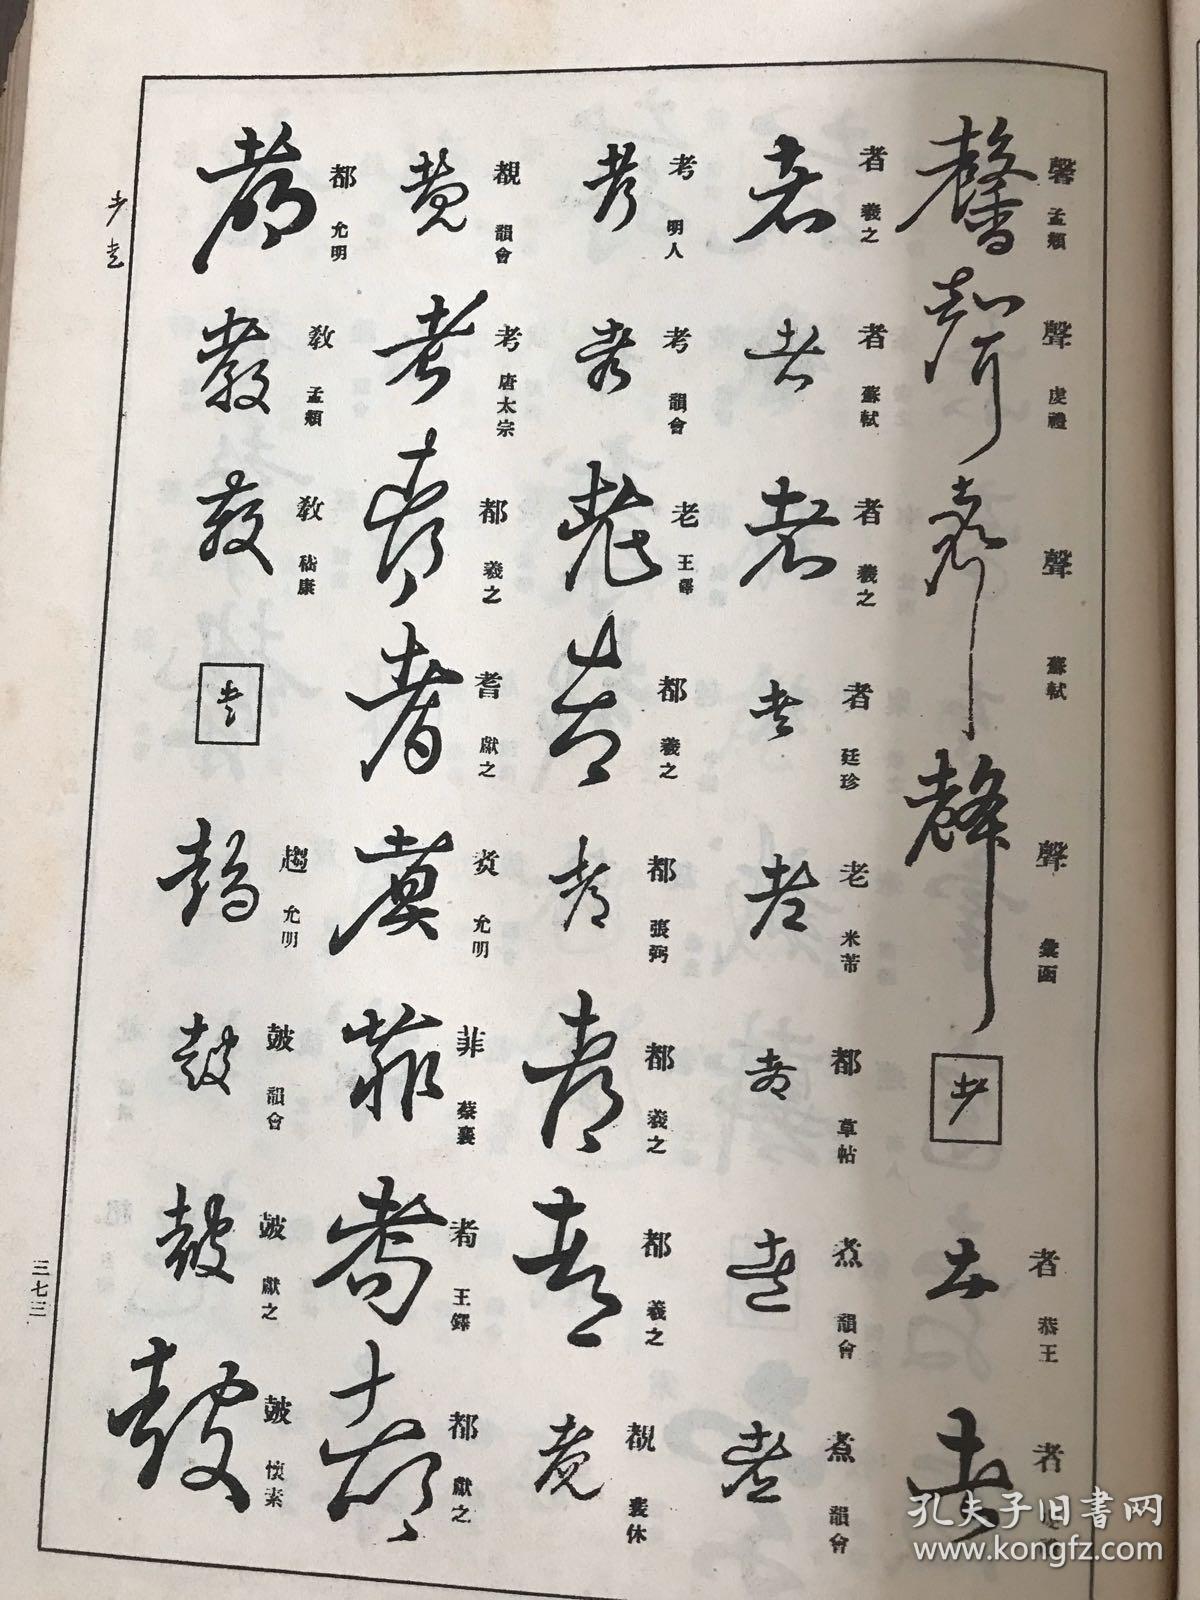 馨 孟頫
聲 虔禮
聲 蘇軾
聲 彙函
者 恭王
者
者 羲之
者 蘇軾
者 羲之
者 廷珍
老 米芾
都 草帖
煮 韻會
煮 韻會
考 明人
考 韻會
老 王鐸
都 羲之
都 張弼
都 羲之
都 羲之
覩 裴休
覩 韻會
考 唐太宗
都 羲之
耆 獻之
賁 允明
菲 蔡襄
耇 王鐸
都 獻之
都 允明
教 孟頫
教 嵇康
趨 允明
皷 韻會
皷 獻之
皷 懷素
三七三
孔夫子旧书网
www.kongfz.com